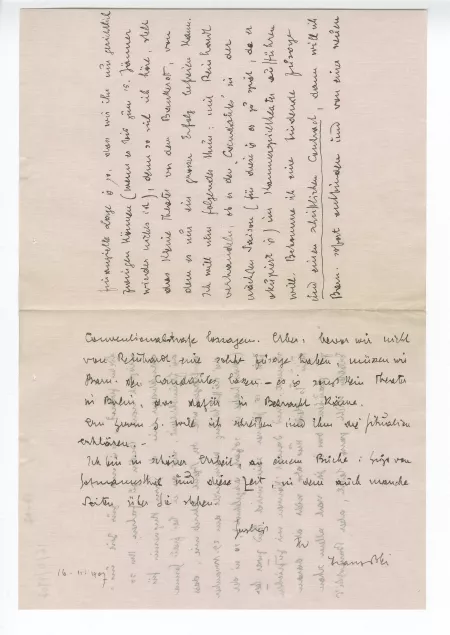 finanzielle Lage ist so, dass wir ihn gerichtlich
zwingen können (wenn es bis zum 15. Jänner
wieder nichts ist), denn so viel ich höre, steht
das Kleine Theater vor dem Bankerot, von
dem es nur ein grosser Erfolg befreien kann.
Ich will nun folgendes thun: mit Reinhardt
verhandeln, ob er den "Comödianten" in der
nächsten Saison (für diese ist es zu spät, da er
okkupiert ist) im Kammerspieltheater aufführen
will. Bekomme ich eine bindende Zusage
und einen schriftlichen Contract, dann will ich
Barn. sofort entbinden und von einer neuen
Conventionalstrafe lossagen. Aber: bevor wir nicht
von Reinhardt eine solche Zusage haben, müssen wir
Barn. den Comödianten lassen – es ist sonst kein Theater
in Berlin, das dafür in Betracht käme.
An Herrn J. will ich schreiben und ihm die Situation
erklären. –
Ich bin in schöner Arbeit, an einem Buche: Hugo von
Hofmannsthal und diese Zeit, in dem auch manche
Seiten über Sie stehen.
Ihr